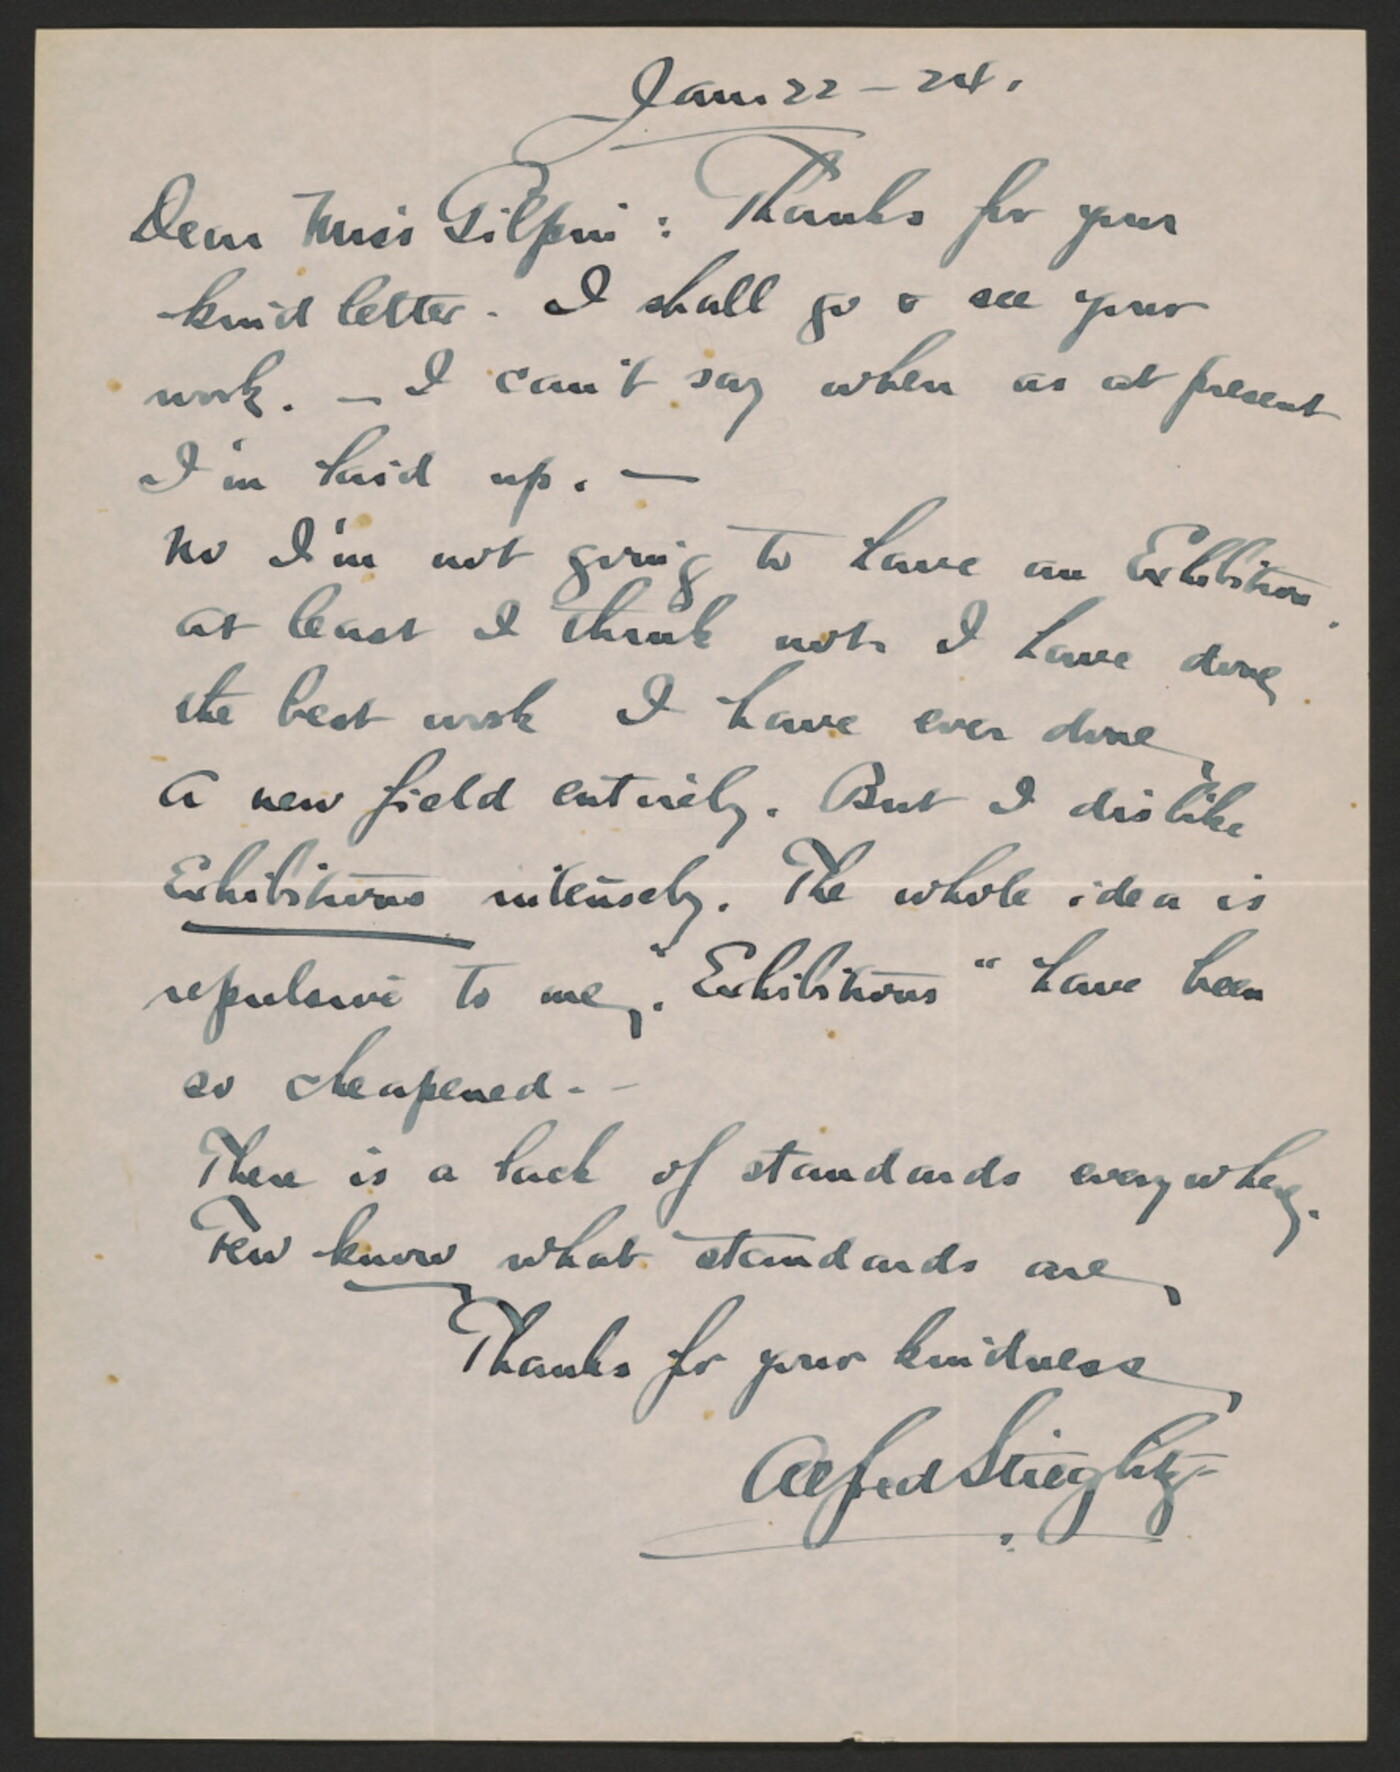 Jan. 22 – 24.
Dear Miss Gilpin : Thanks for your
kind letter. I shall go & see your
work. – I can't say when as at present
I'm laid up. —
No I'm not going to have an Exhibition.
At least I think not. I have done
the best work I have ever done,
A new field entirely. But I dislike
Exhibitions intensely. The whole idea is
repulsive to me. "Exhibitions" have been
so cheapened. –
There is a lack of standards everywhere.
Few know what standards are,
Thanks for your kindness,
Alfred Stieglitz –